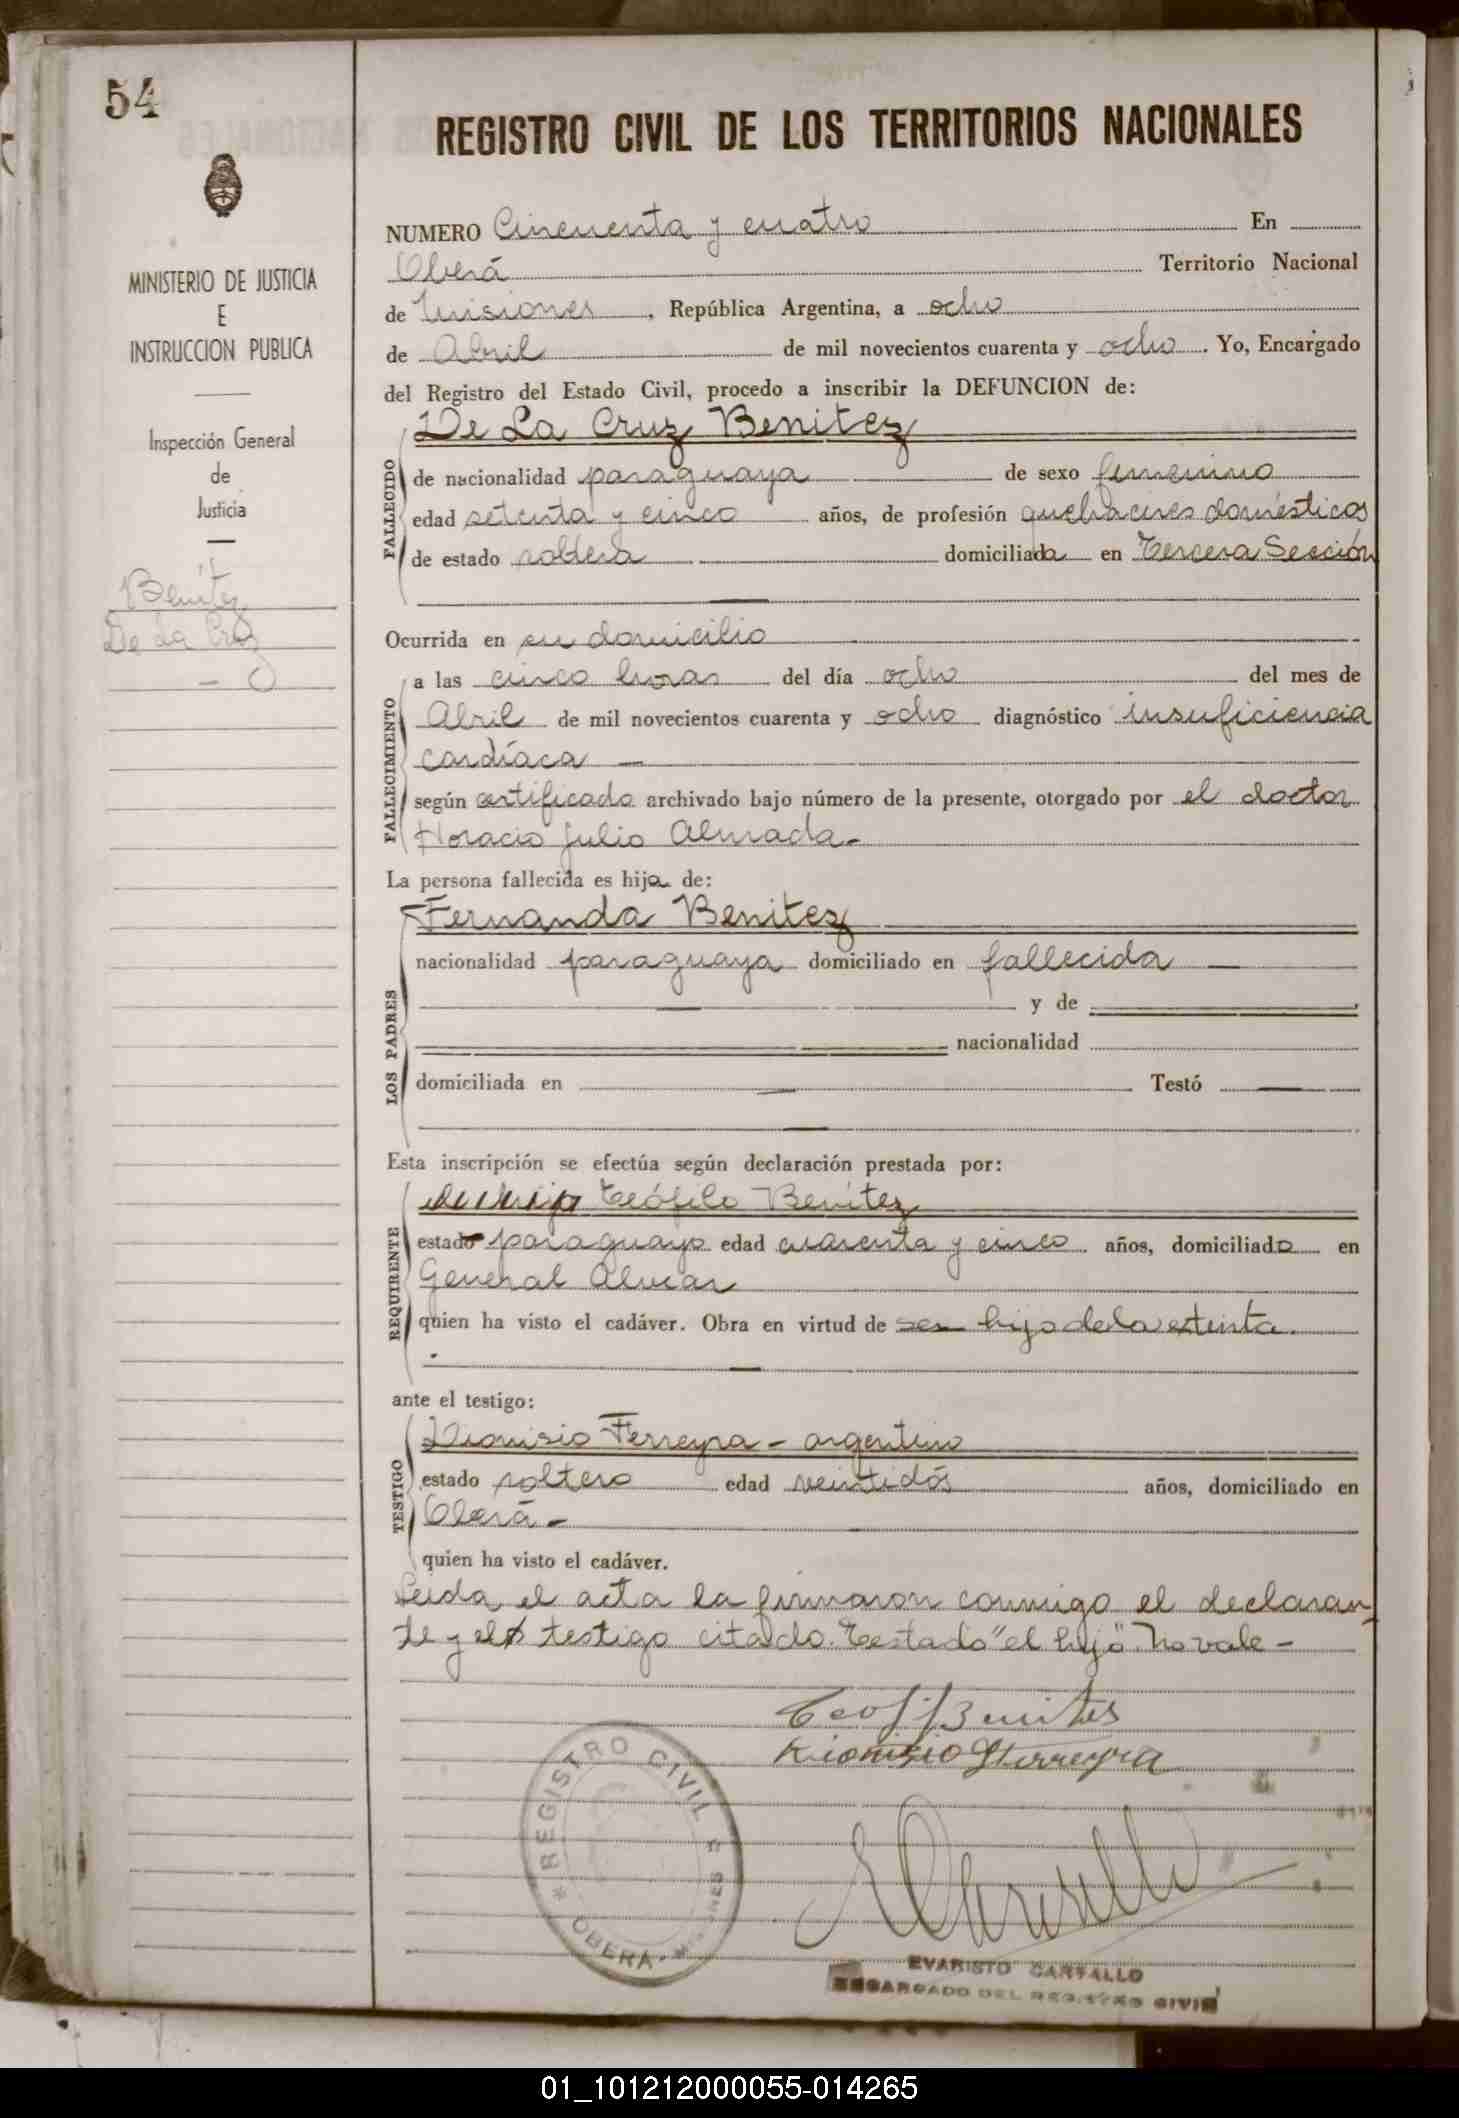 54
REGISTRO CIVIL DE LOS TERRITORIOS NACIONALES
MINISTERIO DE JUSTICIA
E
INSTRUCCION PUBLICA
Inspección General
de
Justicia
Benítez
De La Cruz
NUMERO Cincuenta y cuatro En
Oberá Territorio Nacional
de Misiones, República Argentina, a ocho
de Abril de mil novecientos cuarenta y ocho. Yo, Encargado
del Registro del Estado Civil, procedo a inscribir la DEFUNCION de:
De La Cruz Benitez
FALLECIDO
de nacionalidad paraguaya de sexo femenino
edad setenta y cinco años, de profesión quehaceres domésticos
de estado soltera domiciliada en Tercera Sección
Ocurrida en su domicilio
FALLECIMIENTO
a las cinco horas del día ocho del mes de
Abril de mil novecientos cuarenta y ocho diagnóstico insuficiencia
cardíaca —
según certificado archivado bajo número de la presente, otorgado por el doctor
Horacio Julio Almada.-
La persona fallecida es hija de:
LOS PADRES
Fernanda Benitez
nacionalidad paraguaya domiciliado en fallecida —
— y de
nacionalidad
domiciliada en — Testó —
Esta inscripción se efectúa según declaración prestada por:
REQUIRENTE
Teófilo Benítez
estado paraguayo edad cuarenta y cinco años, domiciliado en
General Alvear
quien ha visto el cadáver. Obra en virtud de ser hijo de la extinta.
ante el testigo:
TESTIGO
Dionisio Ferreyra - argentino
estado soltero edad veintidós años, domiciliado en
Oberá -
quien ha visto el cadáver.
Leida el acta la firmaron conmigo el declaran-
te y el testigo citado. Testado "el hijo". No vale -
Teof. Benites
Dionisio Ferreyra
REGISTRO CIVIL
OBERA
EVARISTO CARVALLO
ENCARGADO DEL REGISTRO CIVIL
01_101212000055-014265